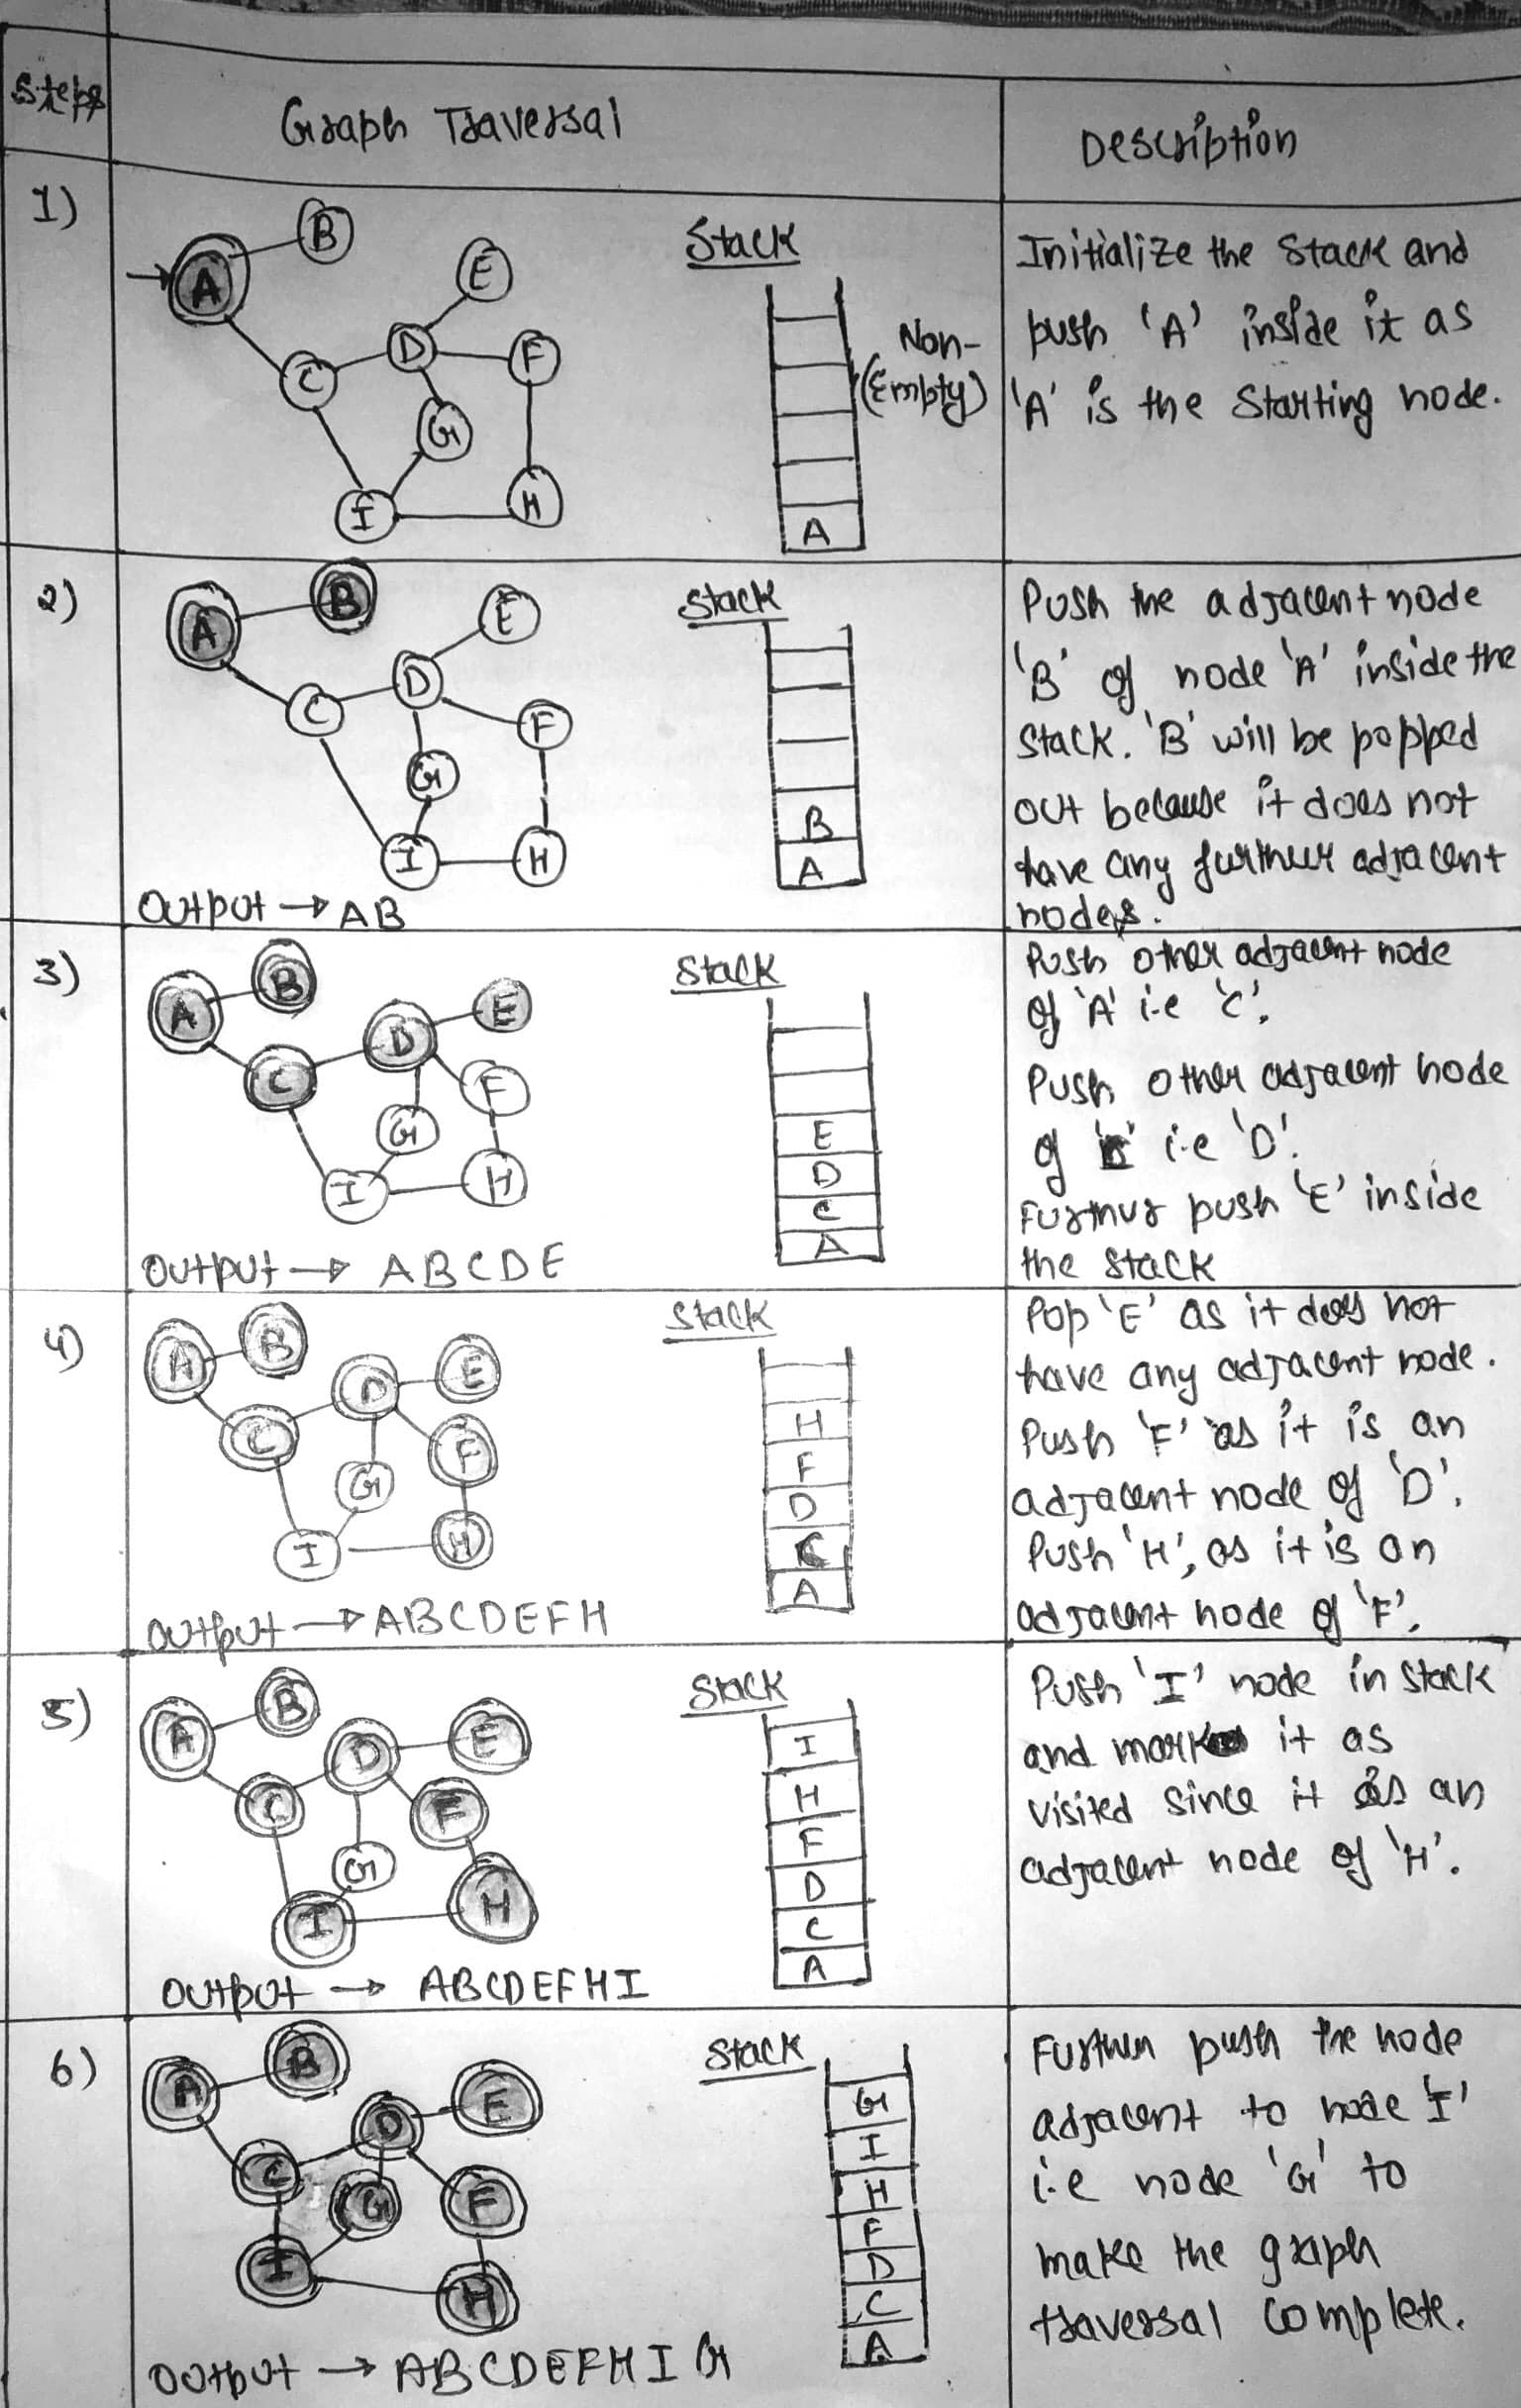 Steps
Graph Traversal
Description
1)
A
B
E
D
F
C
G
I
H
Stack
Non-
(Empty)
A
Initialize the Stack and
push 'A' inside it as
'A' is the Starting node.
2)
A
B
E
D
C
F
G
I
H
Output → AB
Stack
B
A
Push the adjacent node
'B' of node 'A' inside the
Stack. 'B' will be popped
out because it does not
have any further adjacent
nodes.
3)
A
B
E
D
C
F
G
I
H
Output → ABCDE
Stack
E
D
C
A
Push other adjacent node
of 'A' i.e 'C'.
Push other adjacent node
of i.e 'D'.
Further push 'E' inside
the stack
4)
A
B
E
D
C
F
G
I
H
Output → ABCDEFH
Stack
H
F
D
C
A
Pop 'E' as it does not
have any adjacent node.
Push 'F' as it is an
adjacent node of 'D'.
Push 'H', as it is an
adjacent node of 'F'.
5)
A
B
E
D
C
F
G
I
H
Output → ABCDEFHI
Stack
I
H
F
D
C
A
Push 'I' node in Stack
and mark it as
visited since it is an
adjacent node of 'H'.
6)
A
B
E
D
C
G
F
I
H
Output → ABCDEFHIG
Stack
G
I
H
F
D
C
A
Further push the node
adjacent to node 'I'
i.e node 'G' to
make the graph
traversal complete.